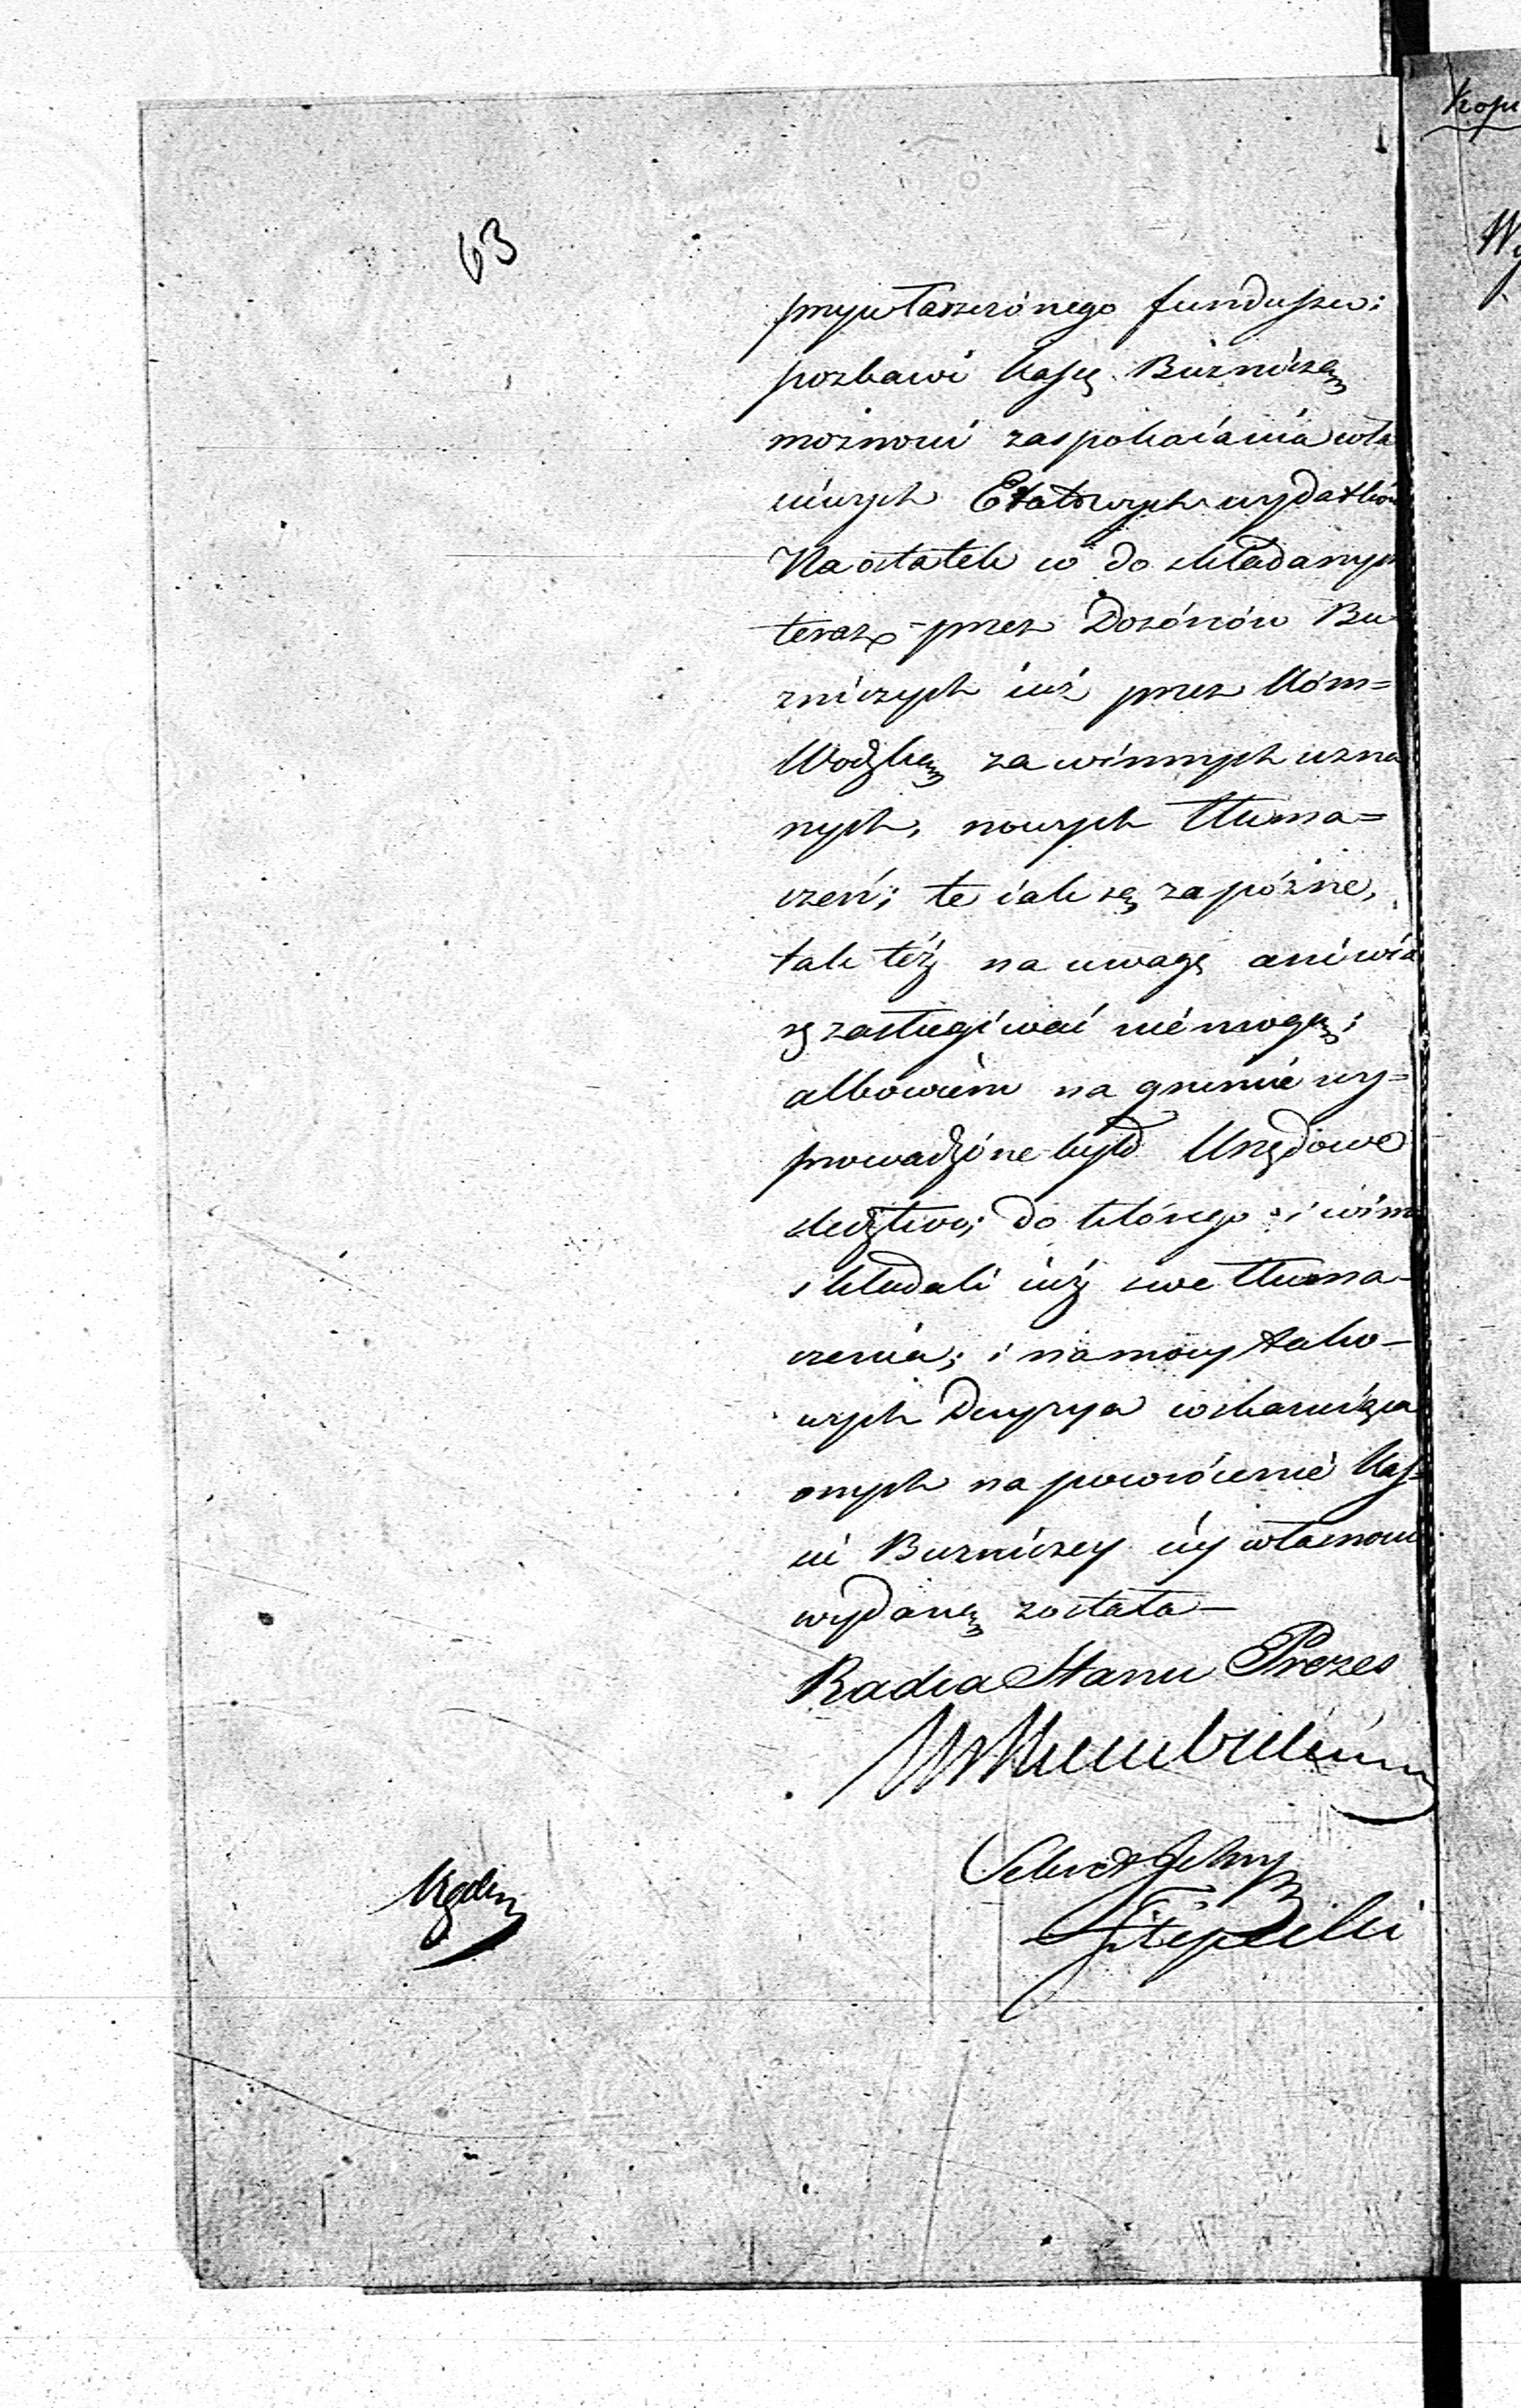 63
przywłaszczónego funduszu;
pozbawi Kassę Bużniczą
możności zaspokaiania wła
ciwych Etatowych wydatków
Na ostatek co do składanych
teraz przez Dozórców Bu-
żniczych iuż przez Kom=
Wodzką za winnych uzna
nych, nowych tłuma=
czeń; te iak są zapóźne,
tak téż na uwagę ani wia
rę zasługiwać niemogą;
albowiem na gruncie wy=
prowadzóne było Urzędowe
sledztwo; do którego i winni
składali iuż swe tłuma-
czenia; i na mocy tako-
wych Decyzya wskazuiąca
onych na powrócenie Kas-
sie Bużniczey iéy własności
wydaną została—
Radca Stanu Prezes
Sekret Jlny
Kopi
Wy